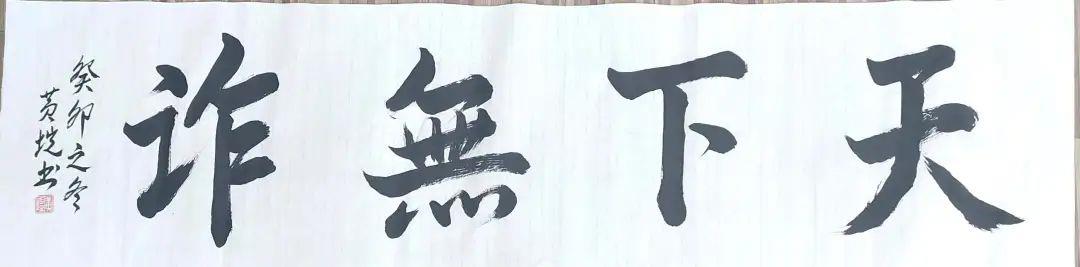 天下無诈
癸卯之冬
黄垙书